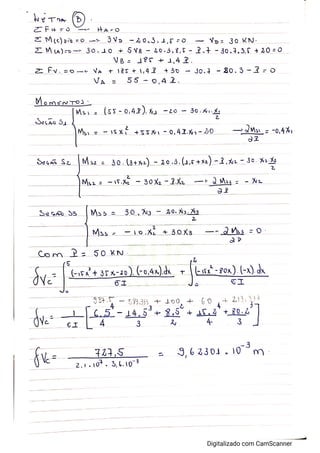 MÉTODO B
ΣFH = 0 → HA = 0
ΣM(c)DIR = 0 → 3VD - 20.3.1,5 = 0 → VD = 30 KN.
ΣM(A) = 30.10 + 5VB - 20.3.8,5 - P.7 - 30.7.3,5 + 20 = 0
VB = 185 + 1,4P.
ΣFV = 0 → VA + 185 + 1,4P + 30 - 30.7 - 20.3 - P = 0
VA = 55 - 0,4P.
MOMENTOS:
Seção S1
MS1 = (55 - 0,4P).X1 - 20 - 30.X1.X1/2
MS1 = -15X² + 55X1 - 0,4P.X1 - 20 → ∂MS1/∂P = -0,4X1
Seção S2
MS2 = 30.(3+X2) - 20.3.(1,5+X2) - P.X2 - 30 X2 X2/2
MS2 = -15.X2² - 30X2 - P.X2 → ∂MS2/∂P = -X2
Seção S3
MS3 = 30.X3 - 20.X3.X3/2
MS3 = -10.X3² + 30X3 → ∂MS3/∂P = 0
Com P = 50 KN
δVC = ∫₀⁵ (-15x² + 35x - 20).(-0,4x) dx / EI + ∫₀² (-15x² - 80x).(-x) dx / EI
+ 100 + 60 + 213,333
δVC = 1/EI [6.5⁴/4 - 14.5³/3 + 8.5²/2 + 15.2⁴/4 + 80.2³/3]
δVC = 727,5 / 2,1.10⁸.3,6.10⁻⁴ = 9,62301.10⁻³ m
Digitalizado com CamScanner